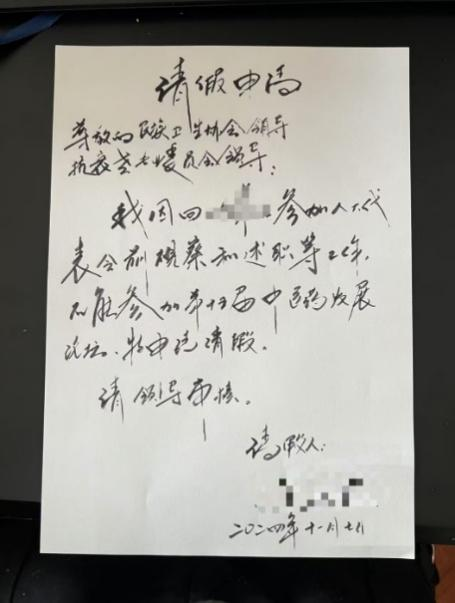 请假申请
尊敬的民族卫生协会领导
抗衰老专业委员会领导：
我因回 参加人大代
表会前视察和述职等工作，
不能参加第十届中医药发展
论坛、特申请请假。
请领导审核。
请假人：
二〇二四年十一月七日